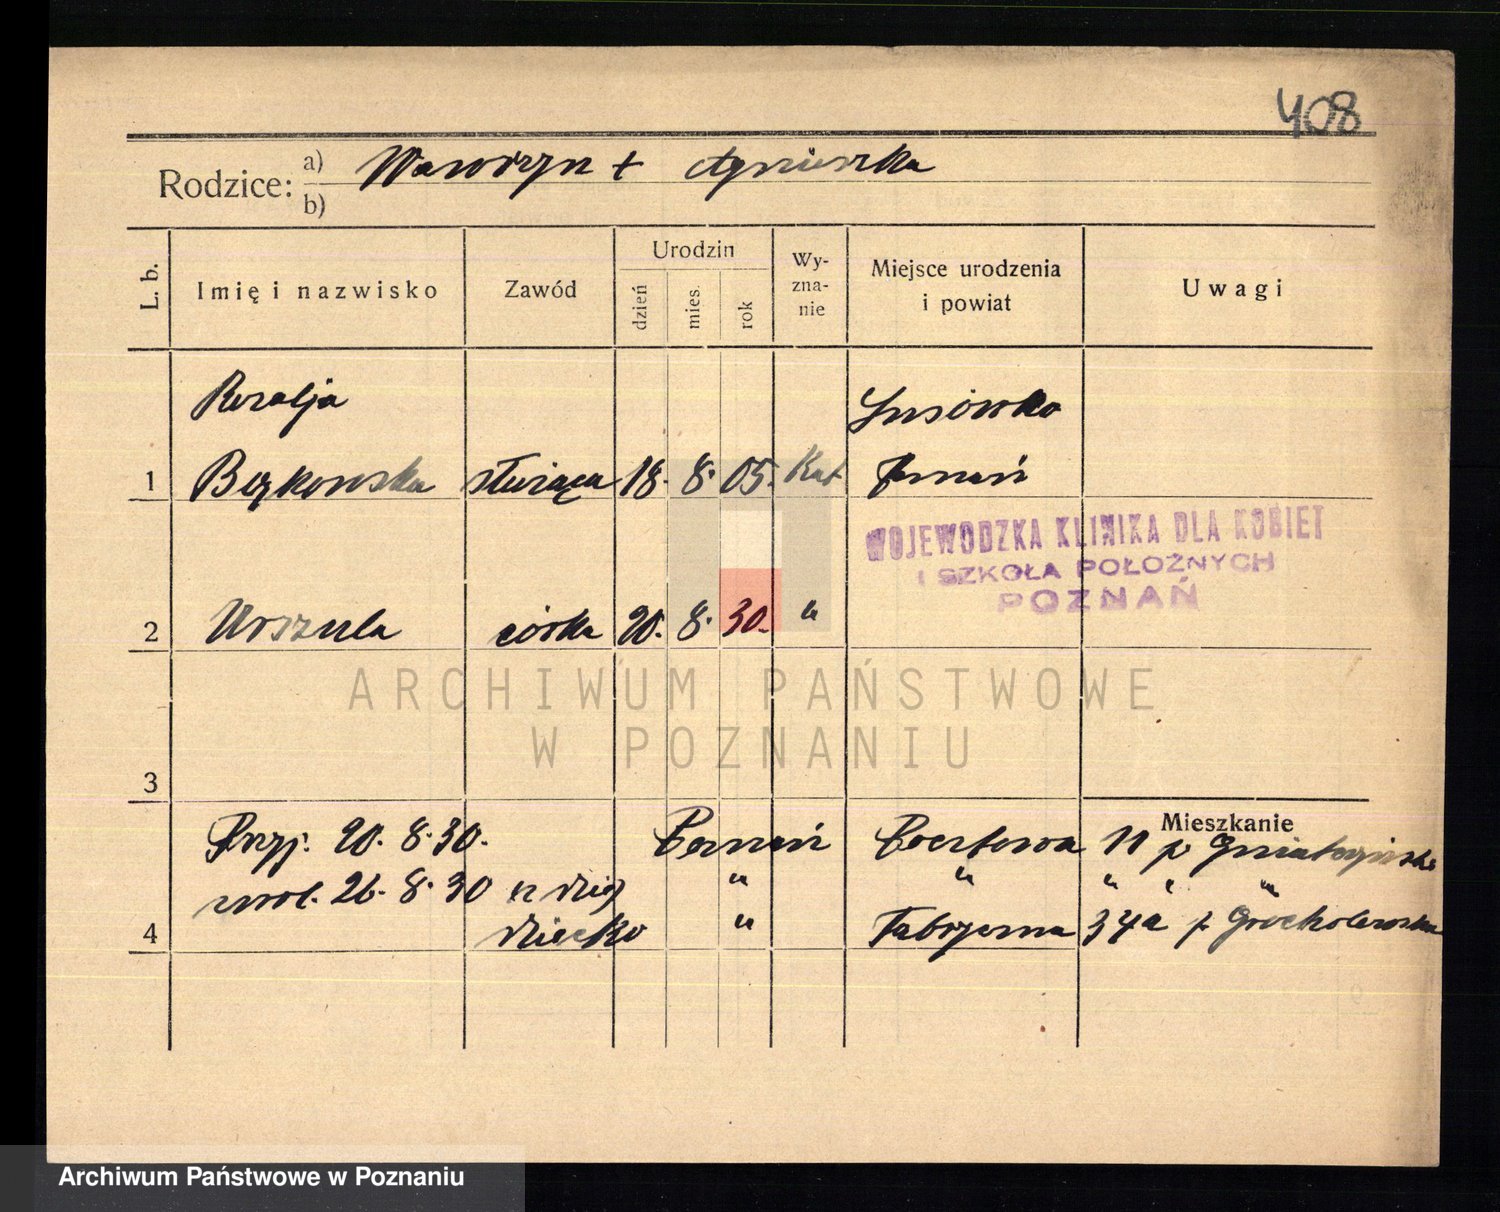 408
Rodzice: a) Wawrzyn + Agnieszka
b)
L. b. Imię i nazwisko Zawód Urodzin dzień mies. rok Wy-zna-nie Miejsce urodzenia i powiat Uwagi
Rozalja Lusówko
1 Bezkowska służąca 18. 8. 05. Kat Poznań
WOJEWODZKA KLINIKA DLA KOBIET
I SZKOŁA POŁOŻNYCH
POZNAŃ
2 Urszula córka 20. 8. 30. "
ARCHIWUM PAŃSTWOWE
W POZNANIU
3
Mieszkanie
Przyj. 20. 8. 30. Poznań Pocztowa 11 p
zwol. 26. 8. 30 " " " " "
4 dziecko " 34a p Grocholewska
Archiwum Państwowe w Poznaniu